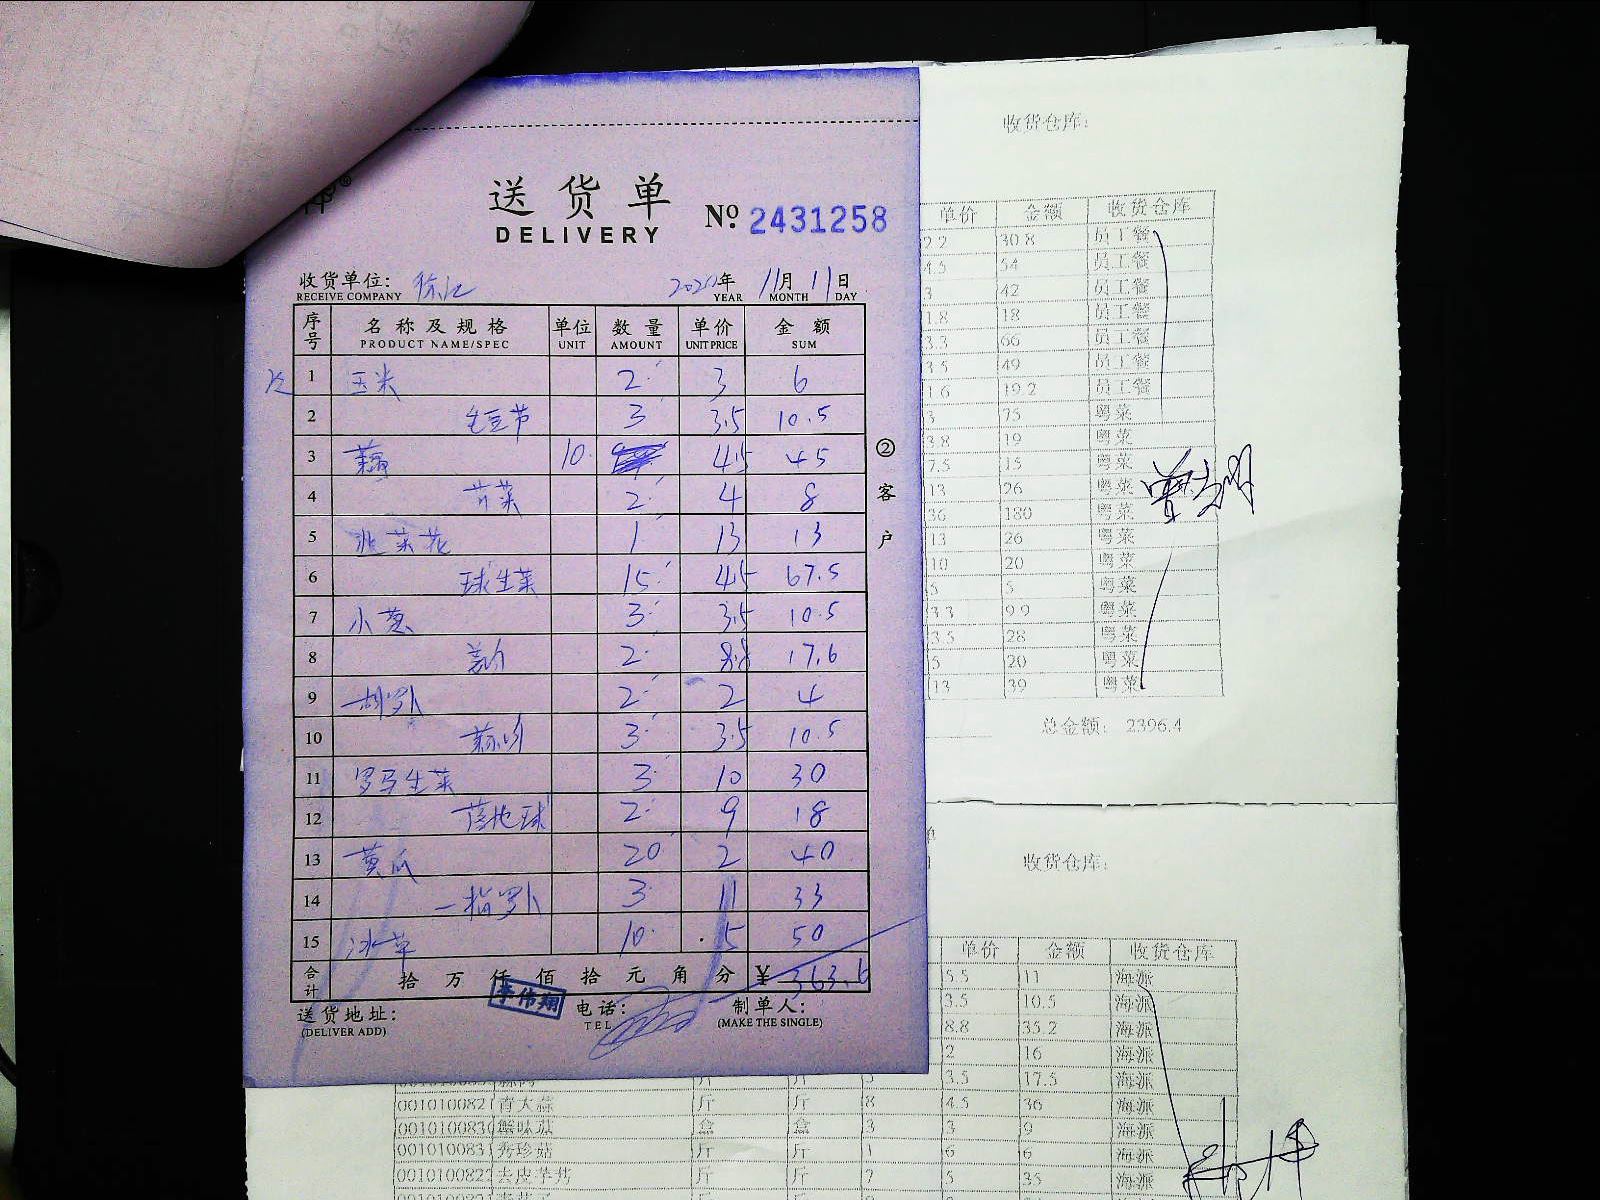 送货单
DELIVERY
No. 2431258
收货单位: 徐汇 2020年 11月 11日
RECEIVE COMPANY YEAR MONTH DAY
序号 名称及规格 单位 数量 单价 金额
PRODUCT NAME/SPEC UNIT AMOUNT UNIT PRICE SUM
1 玉米 2 3 6
2 毛豆节 3 3.5 10.5
3 藕 10 4.5 45
4 芹菜 2 4 8
5 韭菜花 1 13 13
6 球生菜 15 4.5 67.5
7 小葱 3 3.5 10.5
8 2 8.8 17.6
9 胡罗卜 2 2 4
10 3 3.5 10.5
11 罗马生菜 3 10 30
12 2 9 18
13 黄瓜 20 2 40
14 一指罗卜 3 11 33
15 冰草 10 5 50
合计 拾 万 仟 佰 拾 元 角 分 ¥ 363.6
李伟翔
送货地址: 电话: 制单人:
(DELIVER ADD) TEL (MAKE THE SINGLE)
② 客户
收货仓库:
单价 金额 收货仓库
2.2 30.8 员工餐
4.5 54 员工餐
3 42 员工餐
1.8 18 员工餐
3.3 66 员工餐
3.5 49 员工餐
1.6 19.2 员工餐
3 75 粤菜
3.8 19 粤菜
7.5 15 粤菜
13 26 粤菜
36 180 粤菜
13 26 粤菜
10 20 粤菜
5 5 粤菜
3.3 9.9 粤菜
3.5 28 粤菜
5 20 粤菜
13 39 粤菜
总金额: 2396.4
收货仓库:
单价 金额 收货仓库
5.5 11 海派
3.5 10.5 海派
8.8 35.2 海派
2 16 海派
斤 斤 5 3.5 17.5 海派
001010082 青大蒜 斤 斤 8 4.5 36 海派
001010083 蟹味菇 盒 盒 3 3 9 海派
001010083 秀珍菇 斤 斤 1 6 6 海派
001010082 去皮芋艿 斤 斤 7 5 35 海派